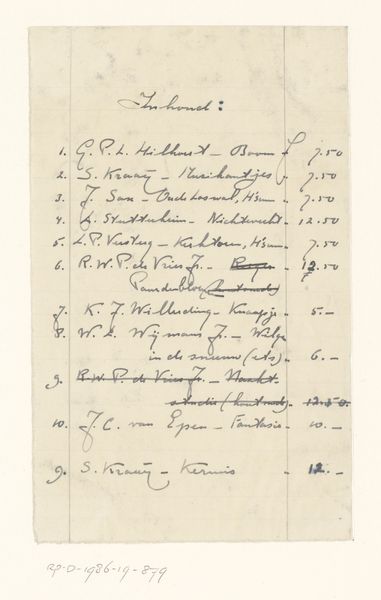 Inhoud:
1. G. P. L. Hilhorst - Boom f 7.50
2. S. Krausz - Muzikantjes „ 7.50
3. J. Sax - Oude Loswal, H'sum „ 7.50
4. L. Stuttnheim - Nichtwacht „ 12.50
5. L. P. Versteeg - Kerktoren, H'sum „ 7.50
6. R. W. P. de Vries Jr. - „ 12.50
Paardenbloem (houtsnede) 7
7. K. J. Willuding - Knaapje „ 5.-
8. W. L. Wijmans Jr. - Wilge
in de sneeuw (ets) „ 6.-
9. R. W. P. de Vries Jr. - Nacht-
studie (houtsnede) „ 12.50
10. J. C. van Epen - Fantasie „ 10.-
9. S. Krausz - Kermis „ 12.-
RP-D-1986-19-879